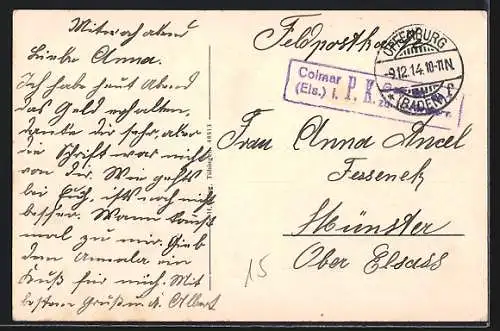 Mittwoch abend
Liebe Anna.
Ich habe heut Abend
das Geld erhalten,
danke dir sehr, aber
die Schrift war nicht
von dir. Wie gehts
bei Euch, ists noch nicht
besser. Wann kommst
mal zu mir. Gieb
dem Annala ein
Kuß für mich. Mit
bestem Gruß u. K. Albert
Feldpostkarte
OFFENBURG
9.12.14. 10-11N.
(BADEN)
Colmar
(Els.) i. P. K.
Frau Anna Ancel
Fessenek
Münster
Ober Elsass
15